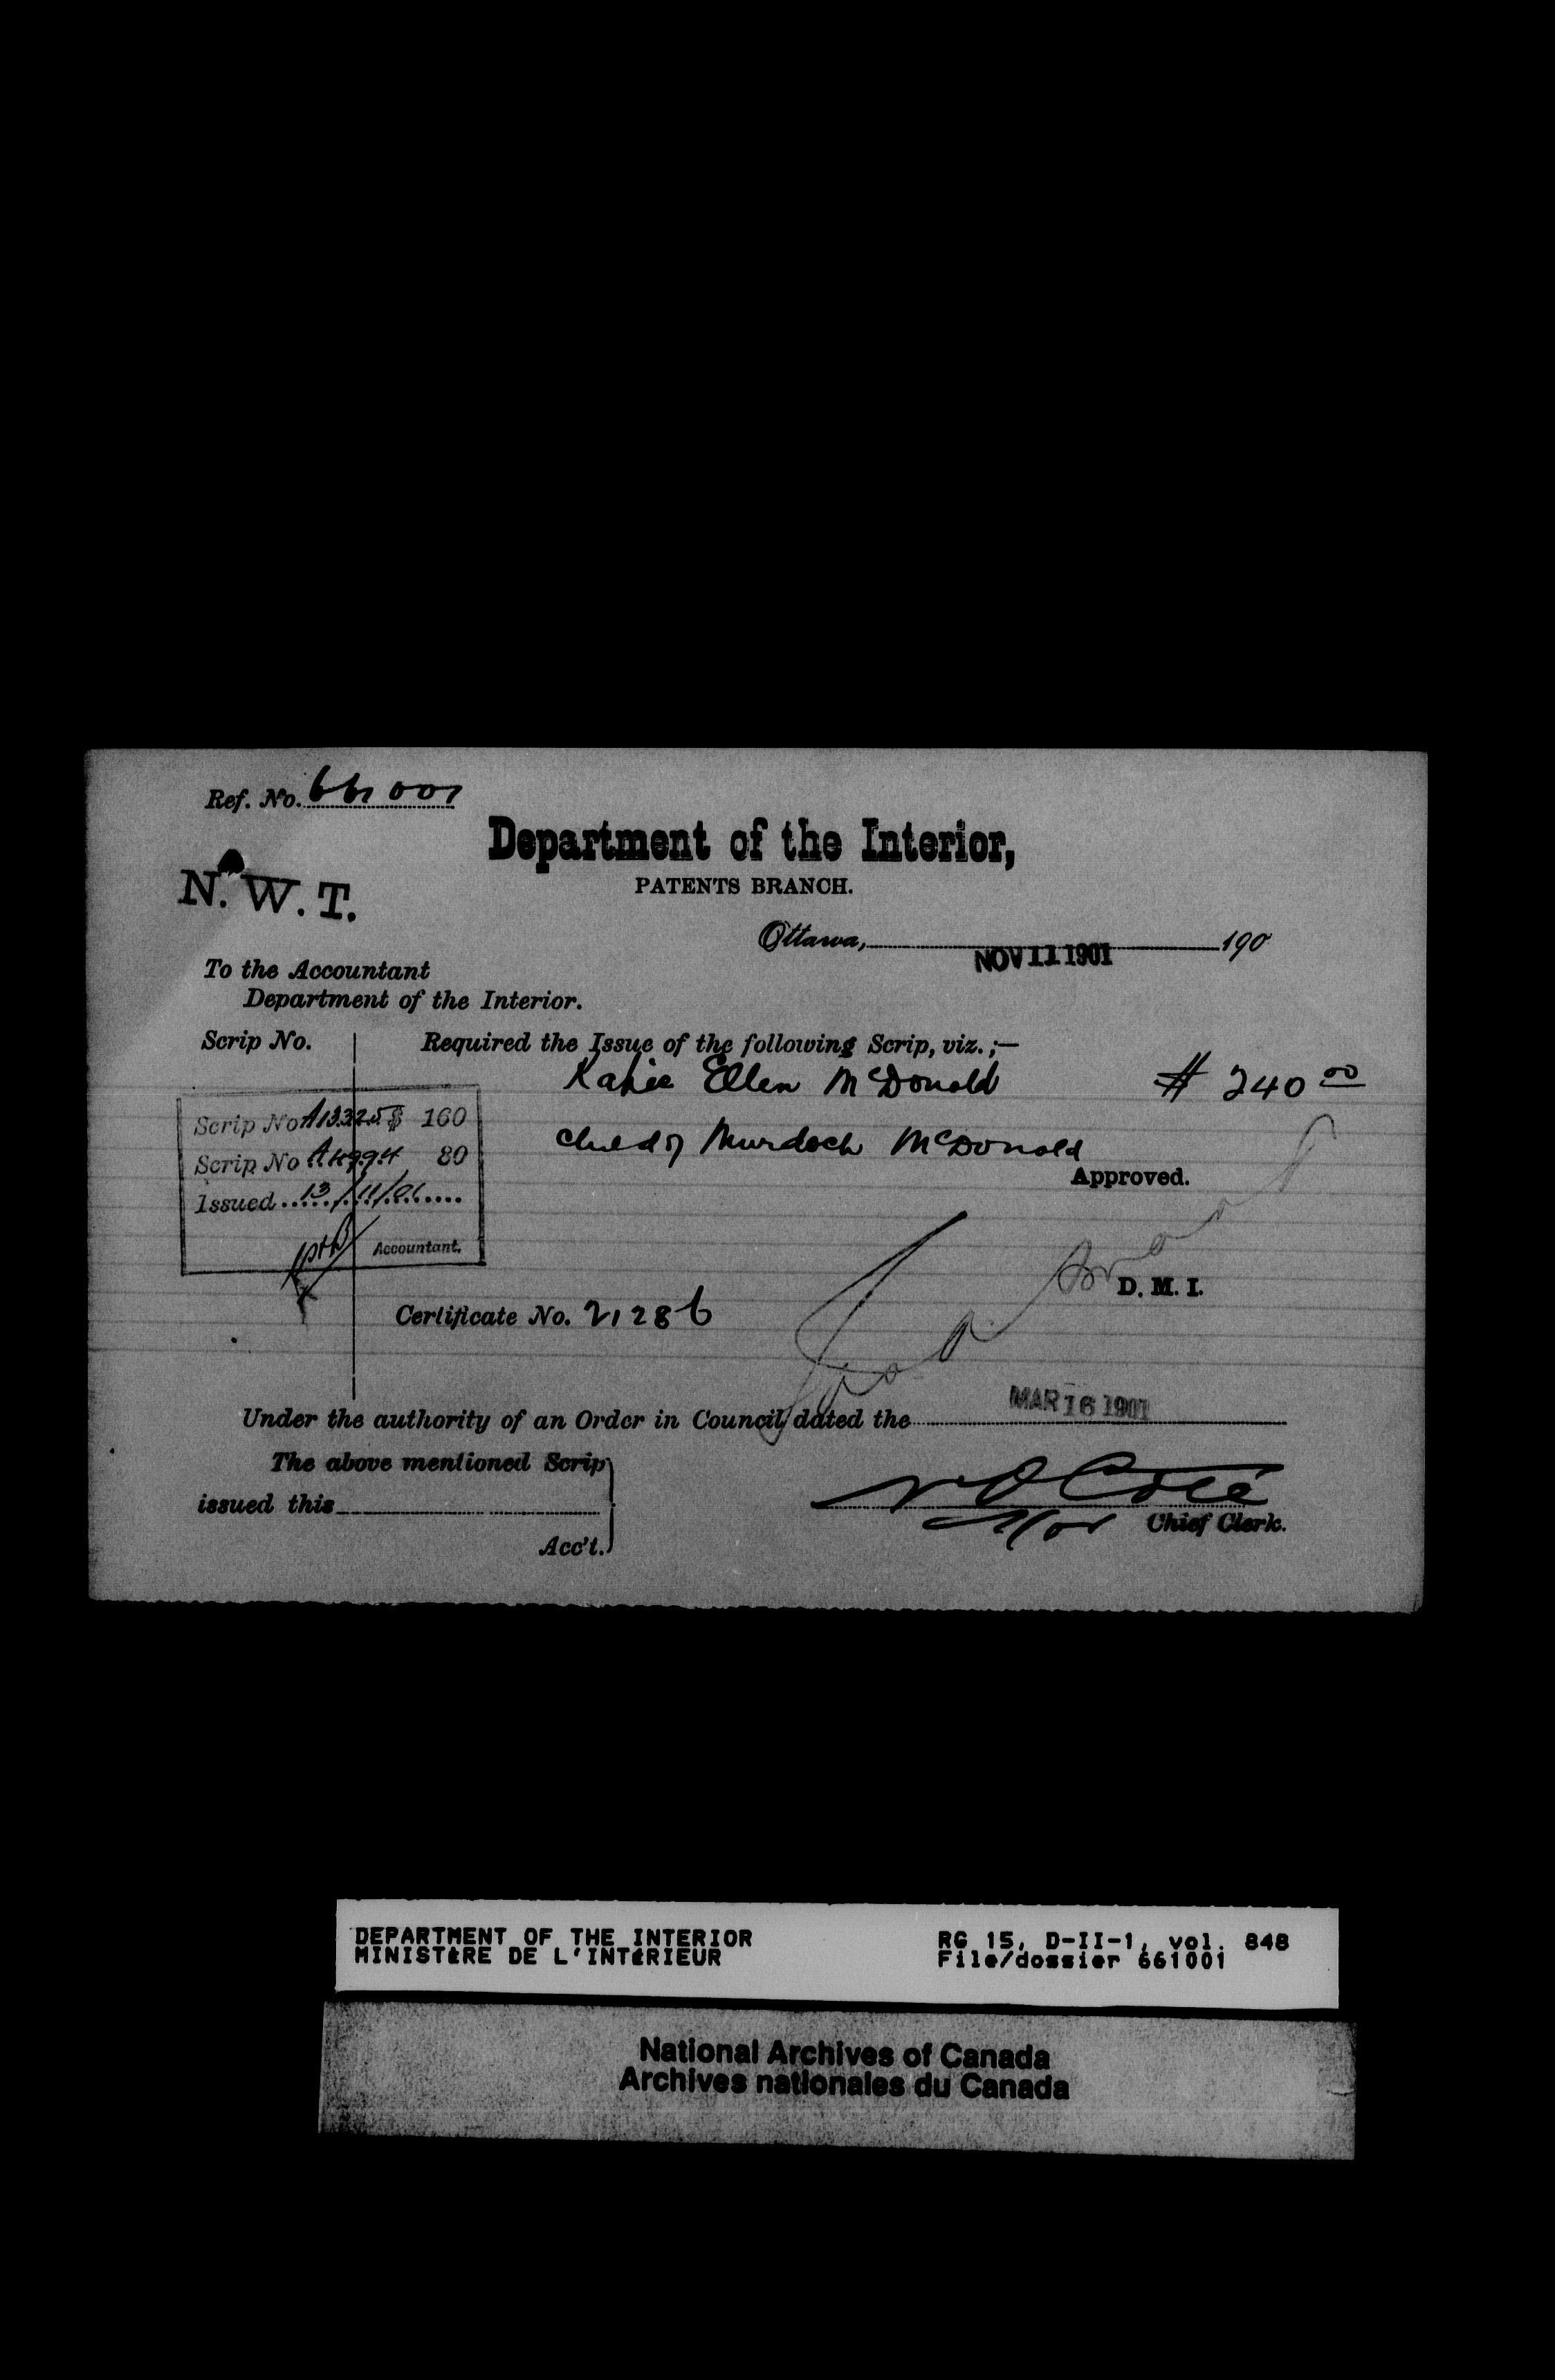 Ref. No. 661001
Department of the Interior,
PATENTS BRANCH.
N. W. T.
Ottawa, NOV 11 1901 190
To the Accountant
Department of the Interior.
Scrip No.
Required the Issue of the following Scrip, viz.;—
Katie Ellen McDonald $ 240 00
Scrip No A13325 $ 160
child of Murdoch McDonald
Scrip No A4994 80
Approved.
Issued 13/11/01
Accountant.
D. M. I.
Certificate No. 21286
Under the authority of an Order in Council dated the MAR 16 1901
The above mentioned Scrip
issued this
N O Coté
Chief Clerk.
Acc't.
DEPARTMENT OF THE INTERIOR RG 15, D-II-1, vol. 848
MINISTÈRE DE L'INTÉRIEUR File/dossier 661001
National Archives of Canada
Archives nationales du Canada